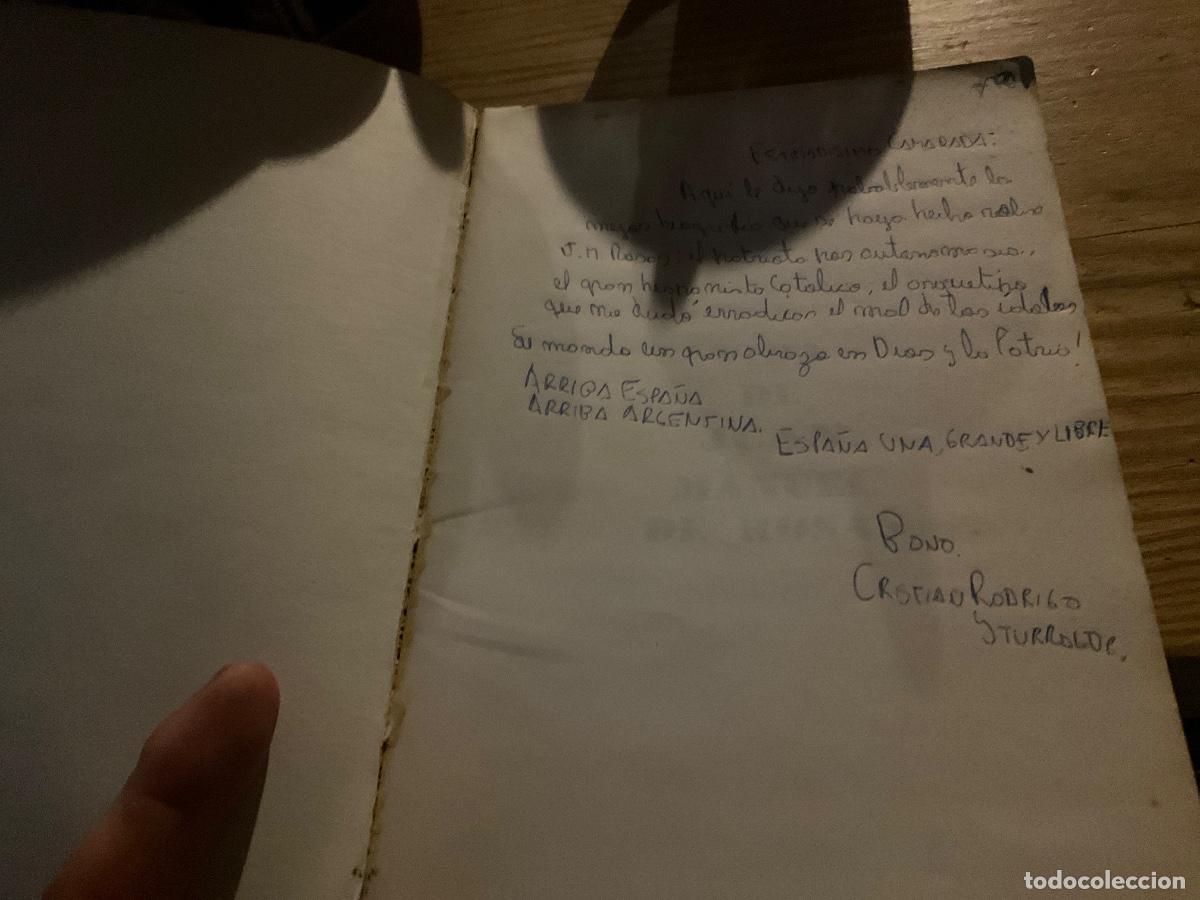 Estimadisimo Camarada:
Aqui le dejo probablemente la
mejor biografia que se haya hecho sobre
J.M Rosas; el patriota por autonomasia,
el gran hispanista Catolico, el arquetipo
que me ayudó erradicar el mal de las idolas
Le mando un gran abrazo en Dios y la Patria!
ARRIBA ESPAÑA
ARRIBA ARGENTINA.
ESPAÑA UNA, GRANDE Y LIBRE
BONO.
CRISTIAN RODRIGO
todocoleccion